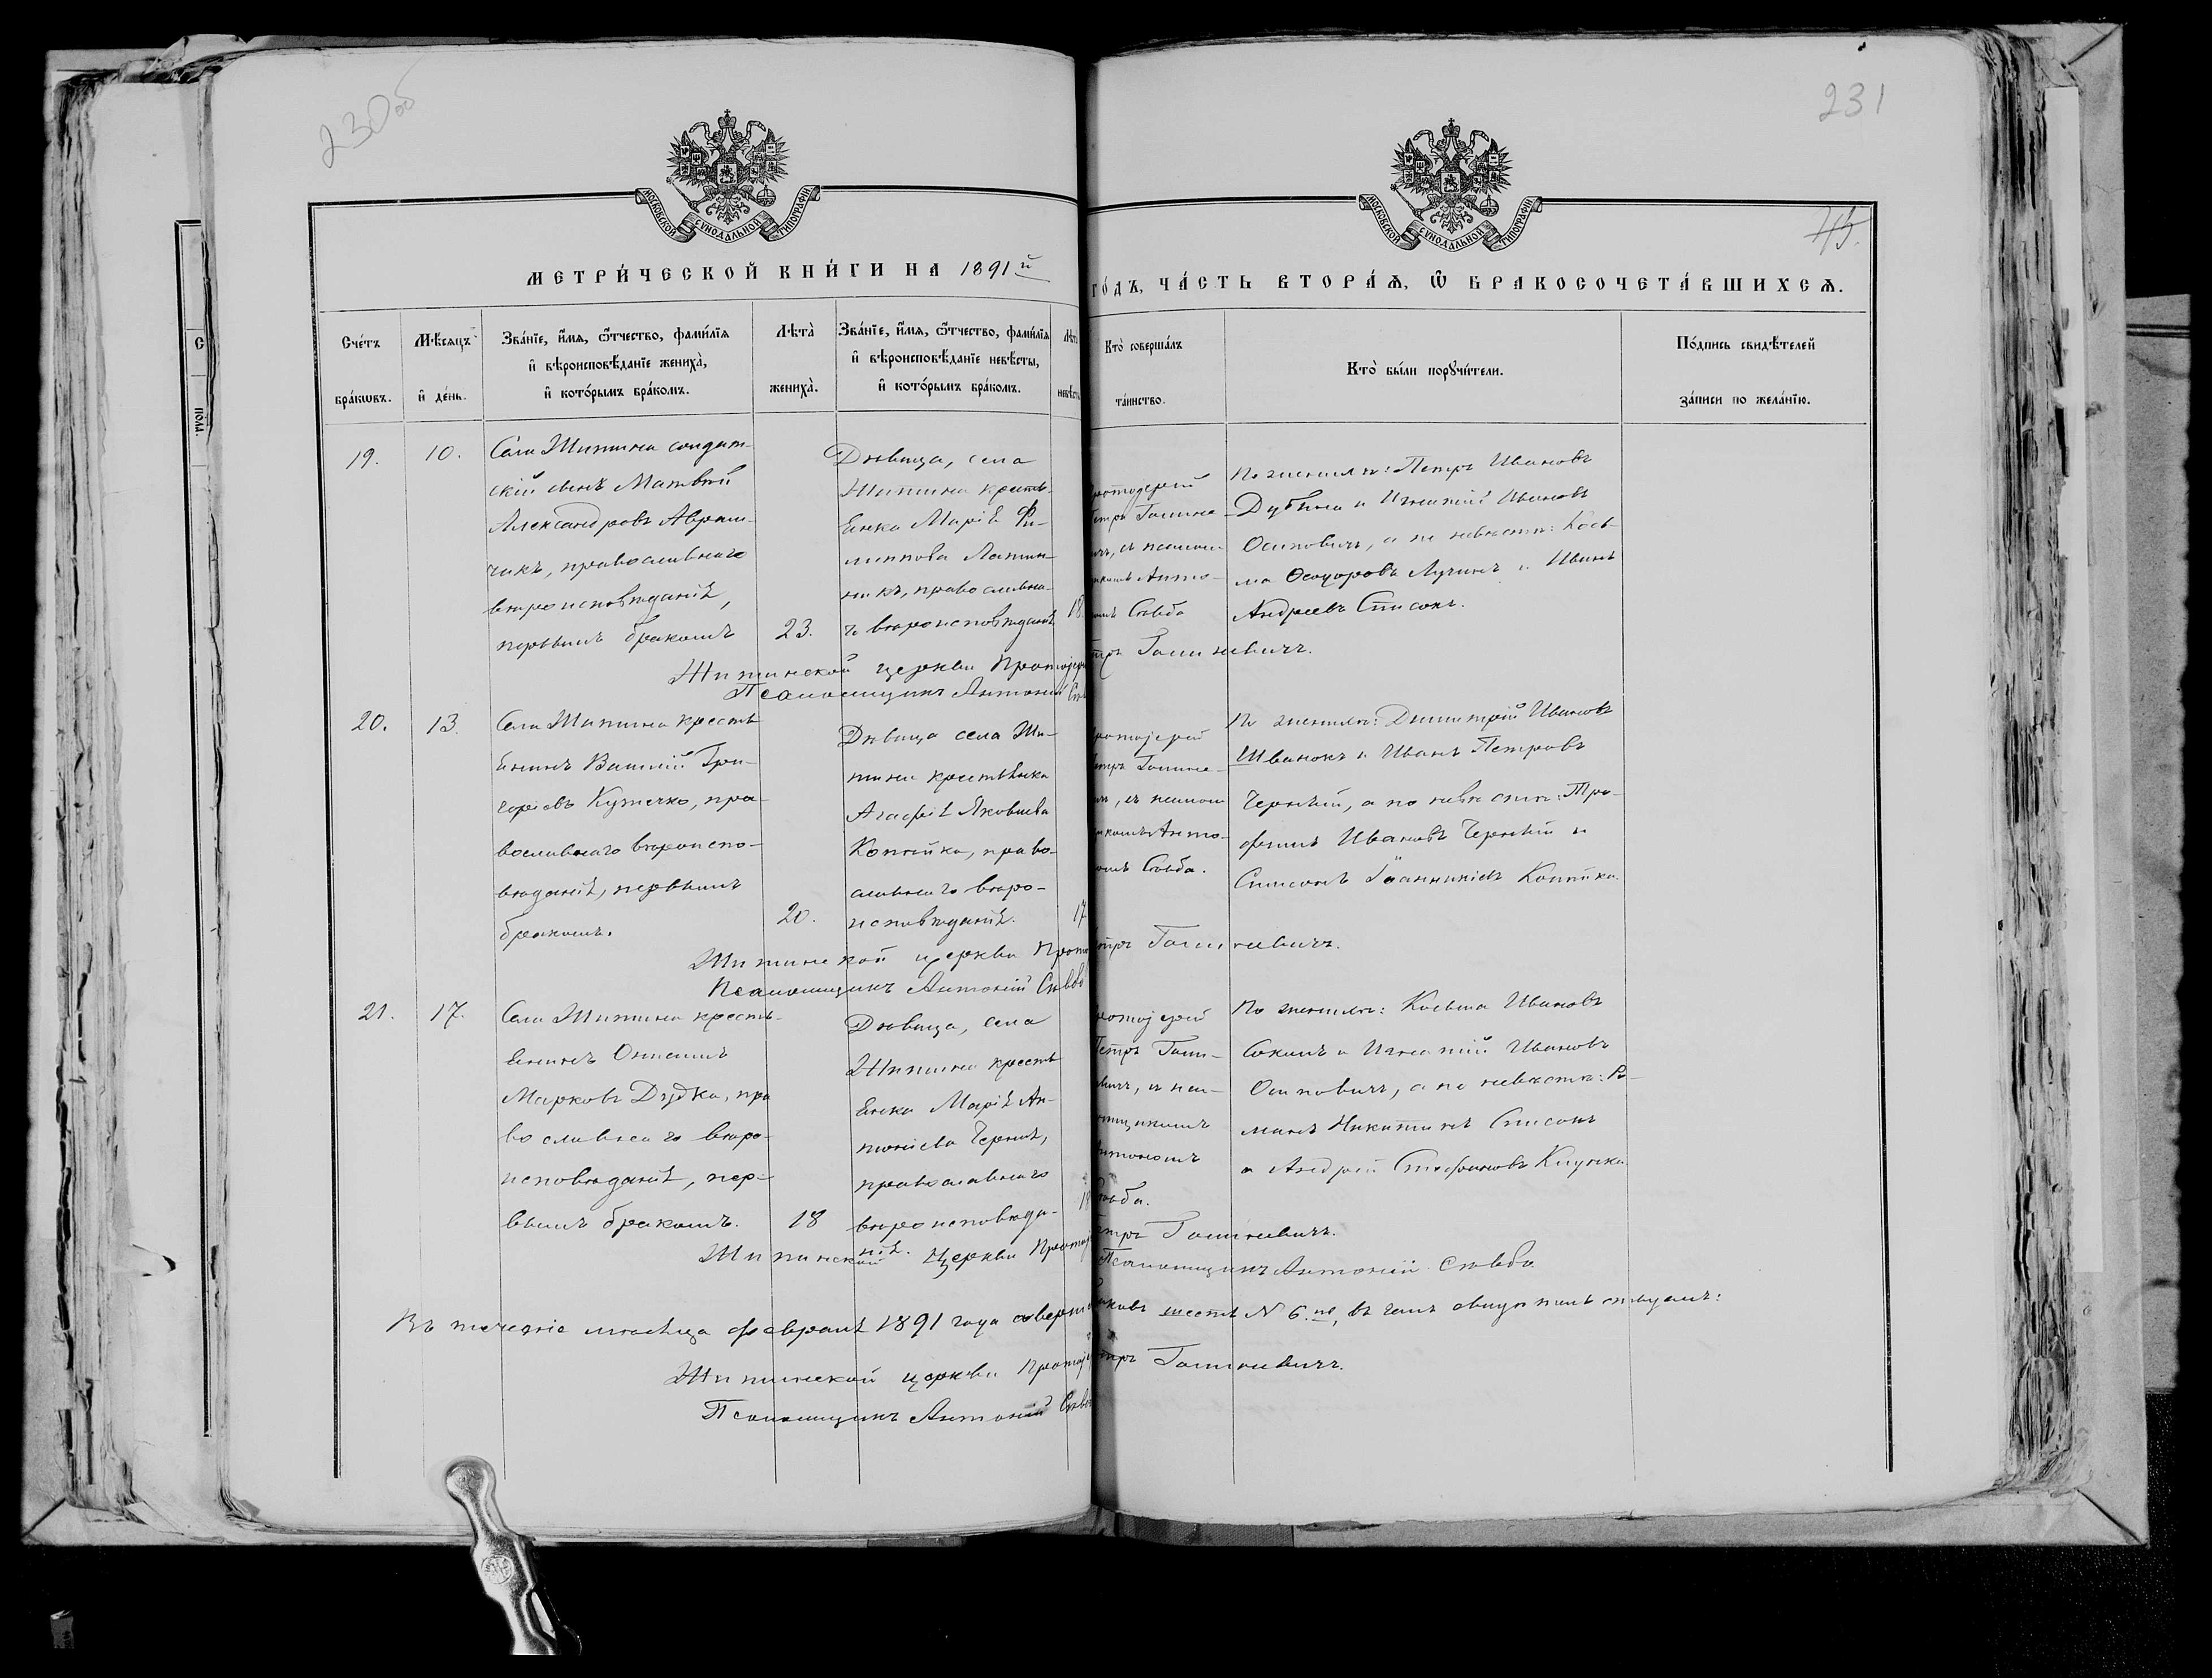 230об
231
МОСКОВСКОЙ СѴНОДАЛЬНОЙ ТИПОГРАФІИ
МОСКОВСКОЙ СѴНОДАЛЬНОЙ ТИПОГРАФІИ
МЕТРИ́ЧЕСКОЙ КНИ́ГИ НА 1891й
ГО́ДЪ, ЧА́СТЬ ВТОРА́Ѧ, Ѿ БРАКОСОЧЕТА́ВШИХСѦ.
Сче́тъ
бра́кѡвъ.
Мѣ́сяцъ
и҆ де́нь.
Зва́нїе, и҆́мѧ, ѻ҆́тчество, фами́лїѧ
и҆ вѣроисповѣ́данїе жениха̀,
и҆ кото́рымъ бра́комъ.
Лѣта̀
жениха̀.
Зва́нїе, и҆́мѧ, ѻ҆́тчество, фами́лїѧ
и҆ вѣроисповѣ́данїе невѣ́сты,
и҆ кото́рымъ бра́комъ.
Кто̀ соверша́лъ
та́инство.
Кто̀ бы́ли порꙋчи́тели.
По́дпись свидѣ́телей
за́писи по жела́нїю.
19.
10.
Села Житина солдат-
скій сынъ Матвѣй
Александровъ Абрам-
чикъ, православнаго
вѣроисповѣданія,
первымъ бракомъ
23.
Дѣвица, села
Житина кресть-
янка Марія Фи-
липпова
православна-
го вѣроисповѣданія
18.
ротоіерей
етръ Гомино-
Анто-
Сѣвба
По женихѣ: Петръ Ивановъ
Дубина и Игнатій Ивановъ
Осиповичъ, а по невѣстѣ: Кось-
ма Ѳеодоровъ Лучина и Иванъ
Андреевъ Списокъ.
Житинской церкви Протоіере
тръ Гоминевичъ.
Псаломщикъ Антоній
20.
13.
Села Житина кресть
янинъ Василій Гри-
горіевъ Кужечко, пра-
вославнаго вѣроиспо-
вѣданія, первымъ
бракомъ.
20.
Дѣвица села Жи-
тина крестьянка
Агафія Яковлева
Копейка, право-
славнаго вѣро-
исповѣданія.
17
ротоіерей
етръ Гомине-
Анто-
Сѣвба.
По женихѣ: Димитрій Ивановъ
Шванокъ и Иванъ Петровъ
Черній, а по невѣстѣ: Тро-
фимъ Ивановъ Черній и
Симеонъ Іоанникіевъ Копейка.
Житинской церкви Прото
етръ Гоминевичъ.
Псаломщикъ Антоній Сѣвба
21.
17.
Села Житина кресть-
янинъ Онисимъ
Марковъ Дудка, пра
вославнаго вѣро-
исповѣданія, пер-
вымъ бракомъ.
18
Дѣвица, села
Житина кресть
янка Марія Ан-
тоніева Черняя,
православнаго
вѣроисповѣда-
нія.
18
ротоіерей
Петръ Гоми-
вичъ, съ пса-
омщикомъ
Антоніемъ
Сѣвба.
По женихѣ: Косьма Ивановъ
и Игнатій Ивановъ
Осиповичъ, а по невѣстѣ: Ро-
манъ Никитинъ Списокъ
и Андрей Стефановъ
Житинской Церкви Протоі
етръ Гоминевичъ.
Псаломщикъ Антоній Сѣвба
Въ теченіе мѣсяца февраля 1891 года соверше
раковъ шесть № 6.ть, въ чемъ свидѣтельствуемъ:
Житинской церкви Протоі
етръ Гоминевичъ.
Псаломщикъ Антоній Сѣвб